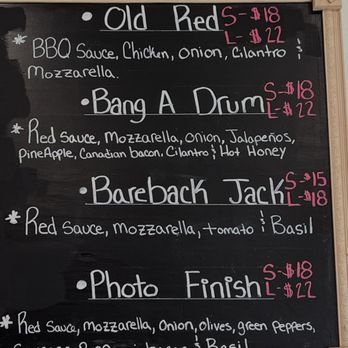 • Old Red S-$18
L-$22
* BBQ Sauce, Chicken, Onion, Cilantro &
Mozzarella.
• Bang A Drum S-$18
L-$22
* Red Sauce, Mozzarella, Onion, Jalapeños,
PineApple, Canadian bacon, Cilantro & Hot Honey
• Bareback Jack S-$15
L-$18
* Red Sauce, Mozzarella, tomato & Basil
• Photo Finish S-$18
L-$22
* Red Sauce, Mozzarella, Onion, olives, green Peppers,
& Basil